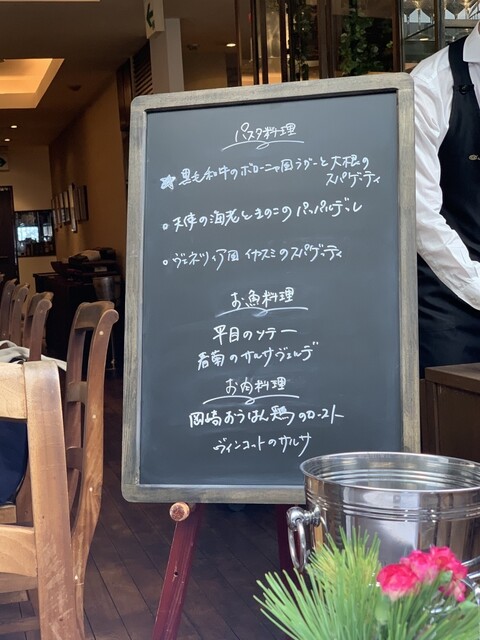 パスタ料理
☆黒毛和牛のボローニャ風ラグーと大根の
スパゲティ
○天使の海老ときのこのパッパルデッレ
○ヴェネツィア風 イカスミのスパゲッティ
お魚料理
平目のソテー
春菊のサルサヴェルデ
お肉料理
岡崎おうはん鶏のロースト
ヴィンコットのサルサ